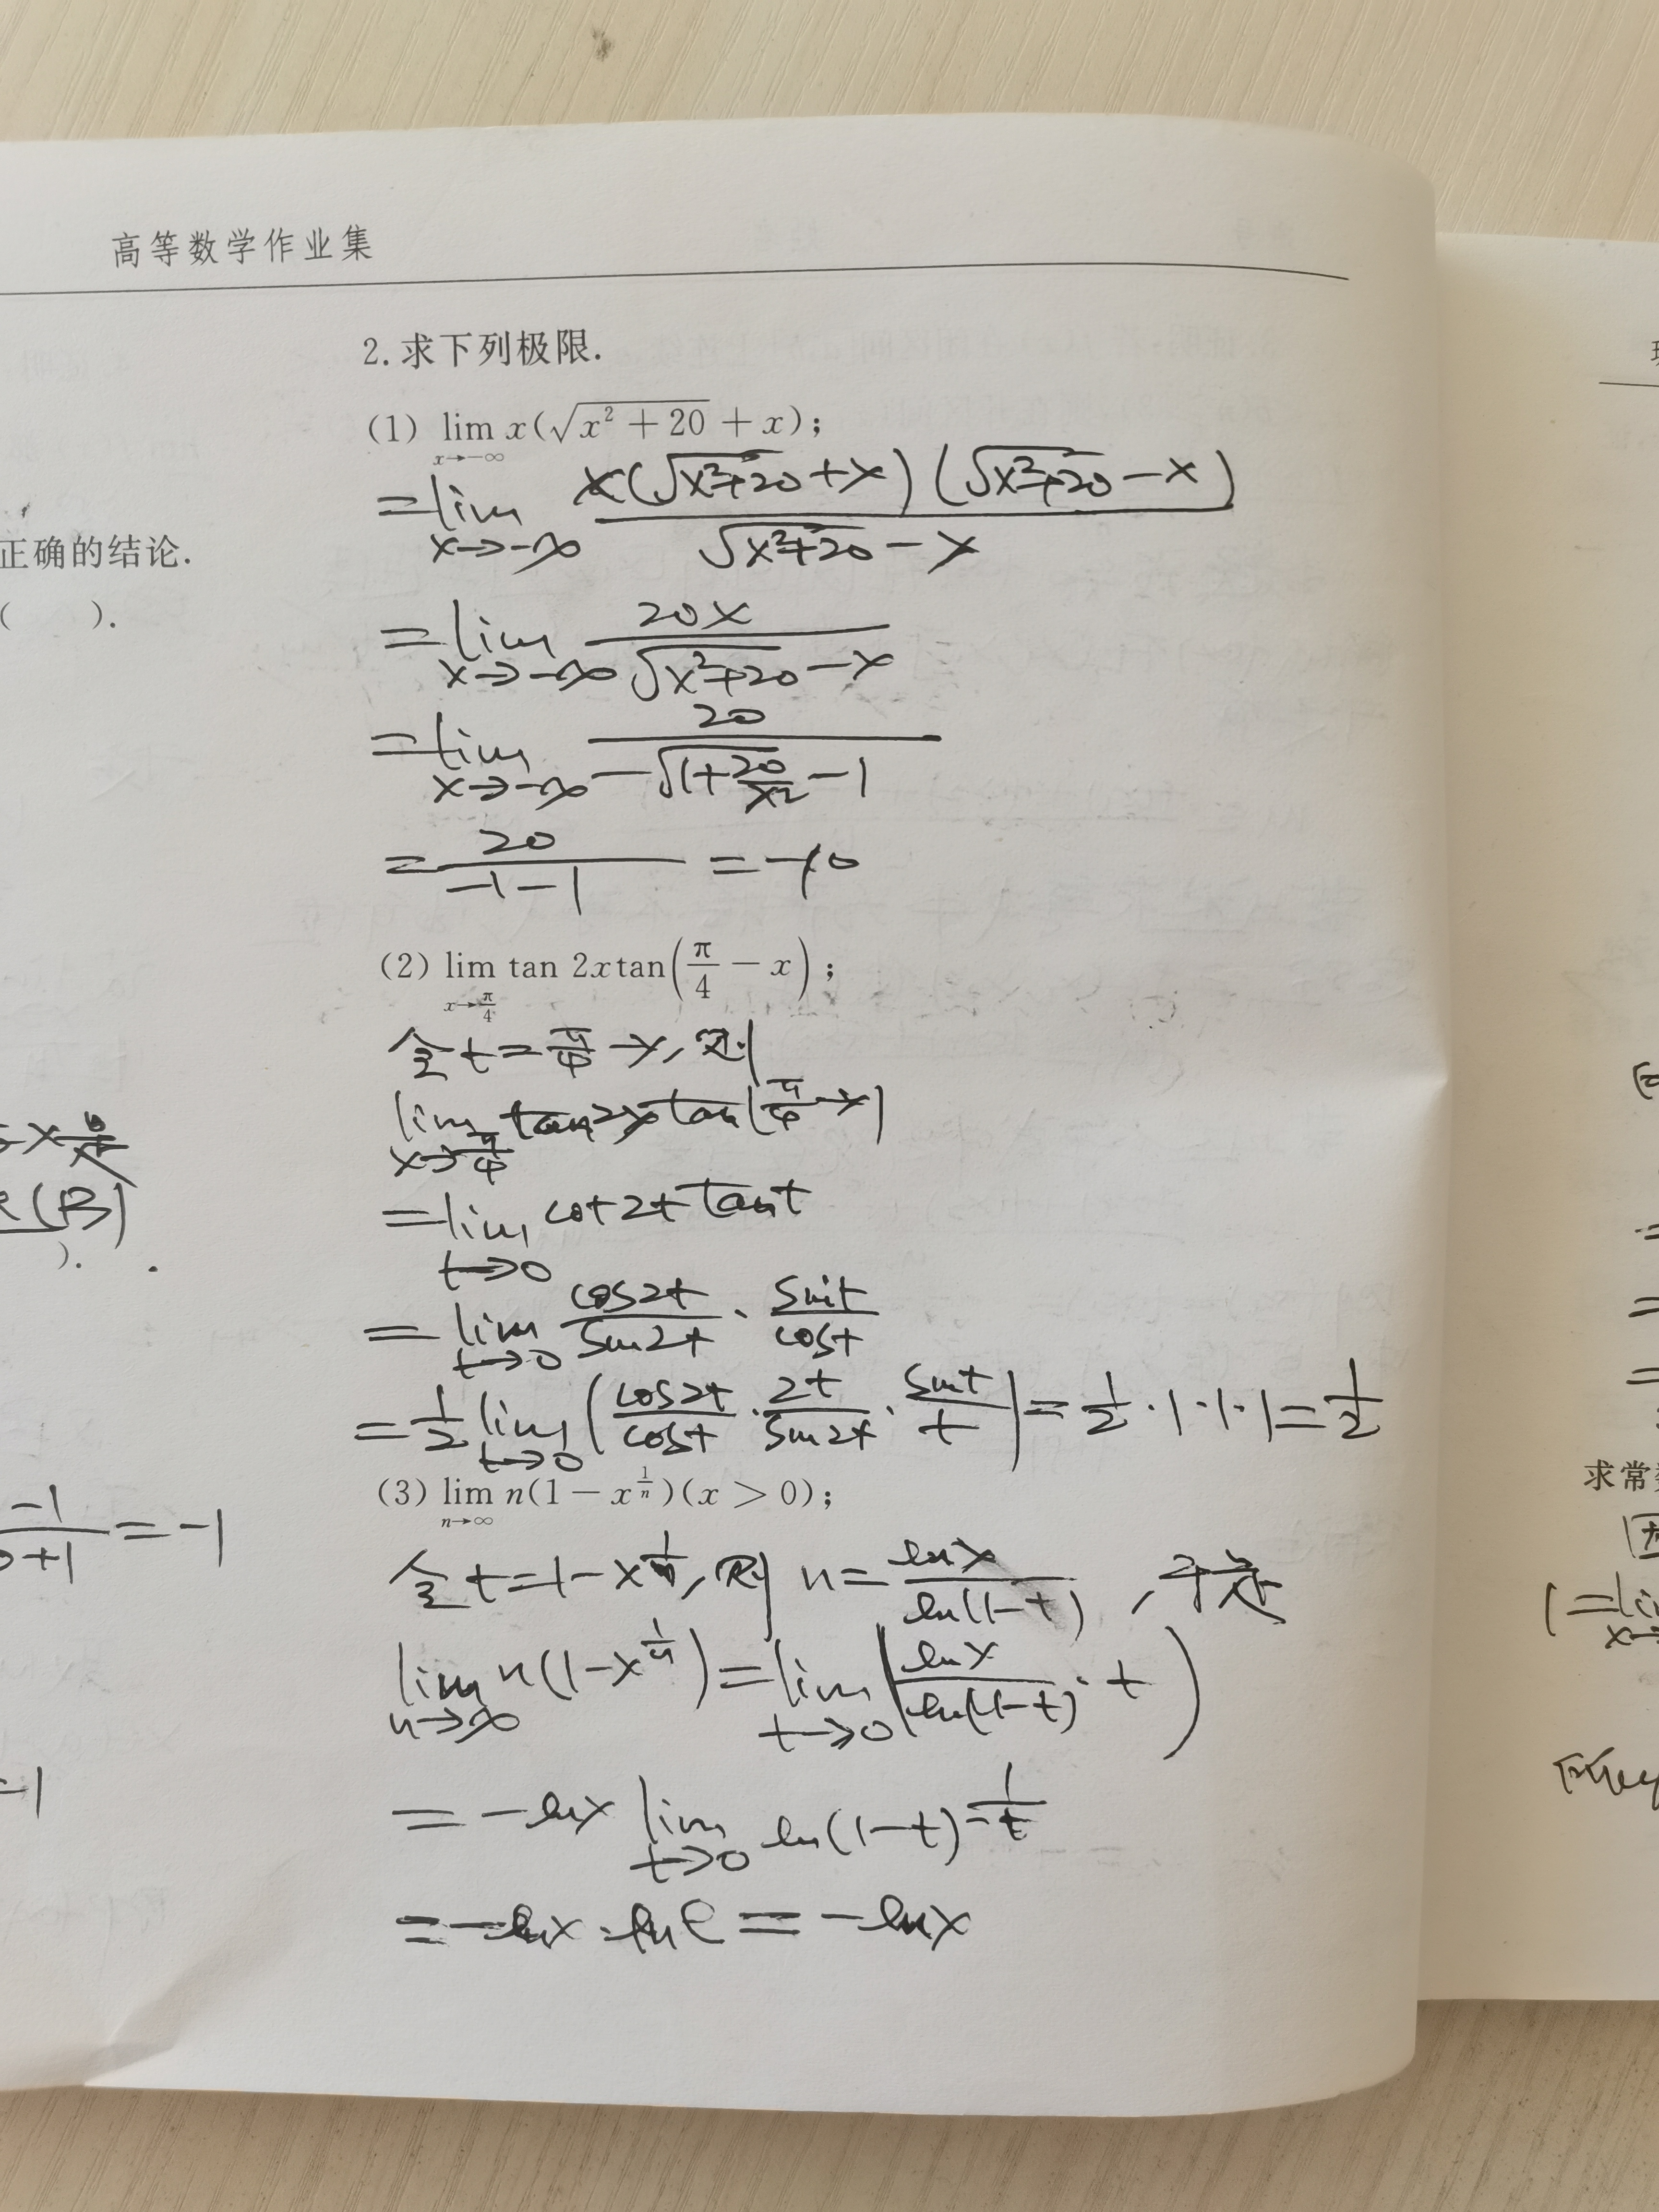 高等数学作业集
正确的结论.
( ).
).
2.求下列极限.
(1) lim x→-∞ x(√(x²+20)+x);
=lim x→-∞ x(√(x²+20)+x)(√(x²+20)-x)/(√(x²+20)-x)
=lim x→-∞ 20x/(√(x²+20)-x)
=lim x→-∞ 20/(-√(1+20/x²)-1)
=20/(-1-1)=-10
(2) lim x→π/4 tan 2xtan(π/4-x);
令t=π/4-x,则
lim x→π/4 tan2xtan(π/4-x)
=lim t→0 cot2t tant
=lim t→0 cos2t/sin2t·sint/cost
=1/2 lim t→0 (cos2t/cost·2t/sin2t·sint/t)=1/2·1·1·1=1/2
(3) lim n→∞ n(1-x^(1/n))(x>0);
令t=1-x^(1/n),则n=lnx/ln(1-t),于是
lim n→∞ n(1-x^(1/n))=lim t→0 (lnx/ln(1-t)·t)
=-lnx lim t→0 ln(1-t)^(-1/t)
=-lnx·lne=-lnx
=-1
-1
求常